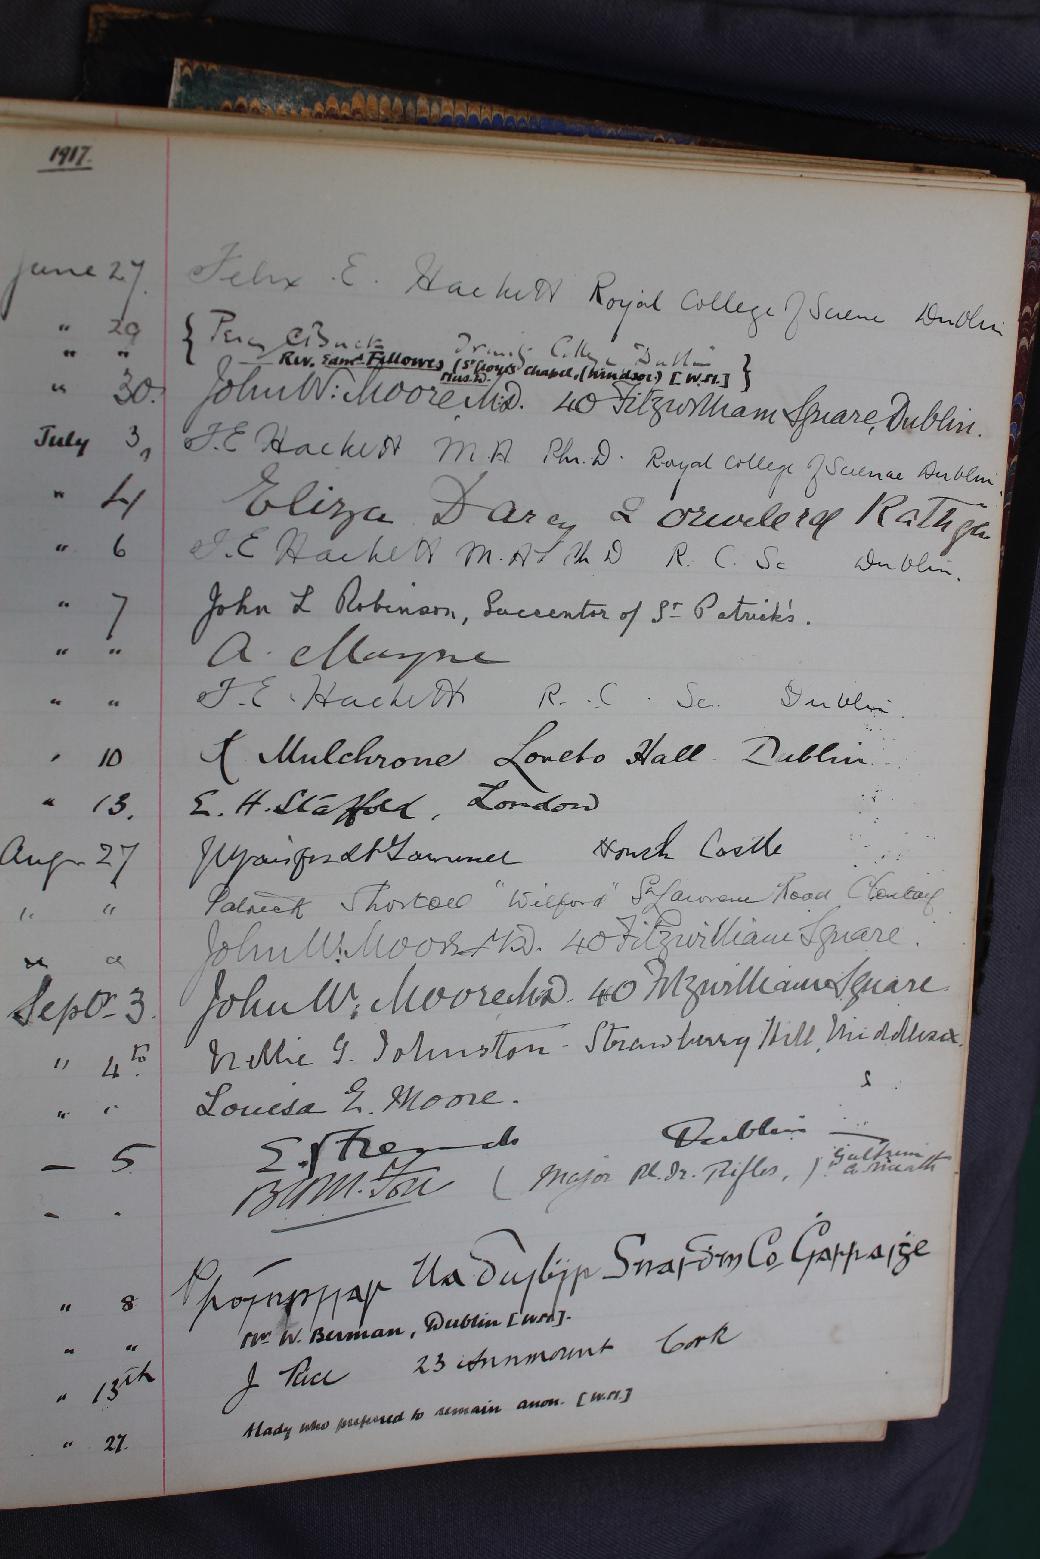 1917.
June 27. Felix E. Hackett Royal College of Science Dublin
" 29 { Percy C. Buck Trinity College Dublin
" " Rev. Edmd. Fellowes, (St. George's Chapel, (Windsor) [W.M.] }
Mus.D.
" 30. John W. Moore, M.D. 40 Fitzwilliam Square, Dublin.
July 3, F. E Hackett M.A Ph.D. Royal College of Science Dublin
" 4 Eliza Darcy
" 6 F. E Hackett M.A Ph D R. C. Sc Dublin.
" 7 John L Robinson, Succentor of St Patrick's.
" " A. Mayne
" " F. E. Hackett R. C. Sc. Dublin.
" 10 Mulchrone Loreto Hall Dublin
" 13. E. H. Stafford, London
Aug. 27 Howth Castle
" " Patrick Shortall "Wilford" St Lawrence Road Clontarf
" " John W. Moore M.D. 40 Fitzwilliam Square.
Septr. 3. John W. Moore M.D. 40 Fitzwilliam Square
" 4th Nellie G. Johnston - Strawberry Hill, Middlesex.
" " Louisa E. Moore.
— 5 E. Dublin
- . (Major Rl. Ir. Rifles,) Galtrim
Co. Meath
" 8 Ua
" " Mr W. Berman, Dublin [W.M.].
" 13th J 23 Cork
" 27. A lady who preferred to remain anon. [W.M.]